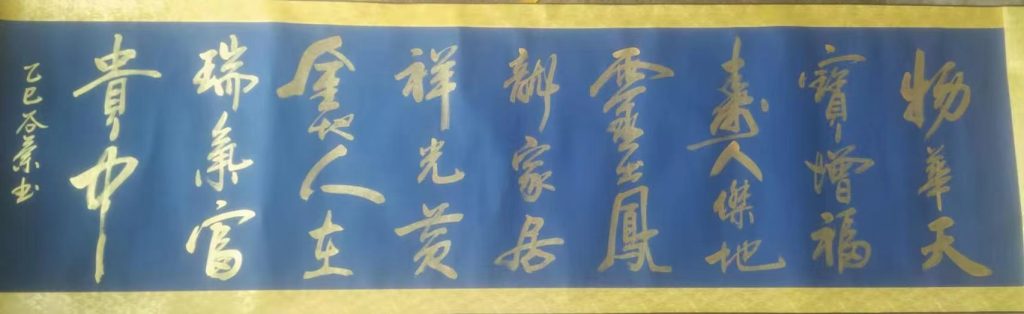 物華天
寶增福
壽人傑地
靈出鳳
龍家居
祥光黃
金地人在
瑞氣富
貴中
乙巳谷书